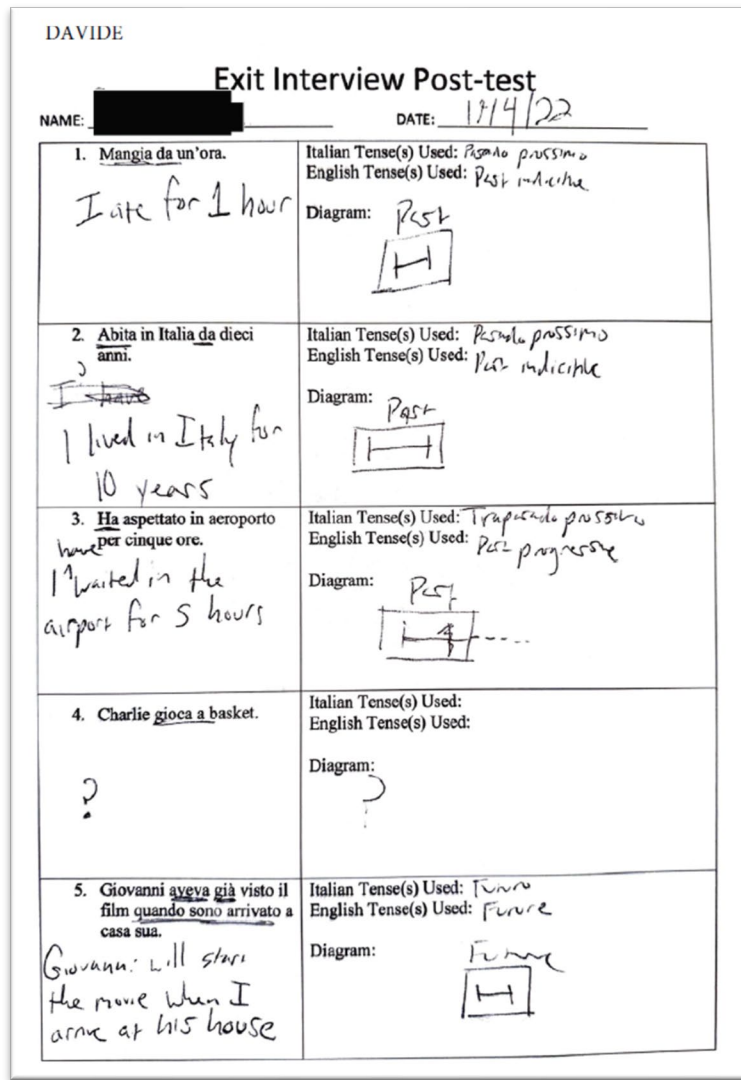 DAVIDE
Exit Interview Post-test
NAME:
DATE: /4/22
1. Mangia da un'ora.
I ate for 1 hour
Italian Tense(s) Used: Pasado prossimo
English Tense(s) Used: Past indicitve
Diagram: Past
2. Abita in Italia da dieci
anni.
?
I have
I lived in Italy for
10 years
Italian Tense(s) Used: Pasado prossimo
English Tense(s) Used: Past
Diagram: Past
3. Ha aspettato in aeroporto
per cinque ore.
have
I ^ waited in the
airport for 5 hours
Italian Tense(s) Used: Trapasado prossimo
English Tense(s) Used: Past progressive
Diagram: Past
4. Charlie gioca a basket.
?
Italian Tense(s) Used:
English Tense(s) Used:
Diagram:
?
5. Giovanni aveva già visto il
film quando sono arrivato a
casa sua.
Giovanni will start
the movie when I
arrive at his house
Italian Tense(s) Used: Futuro
English Tense(s) Used: Future
Diagram: Future